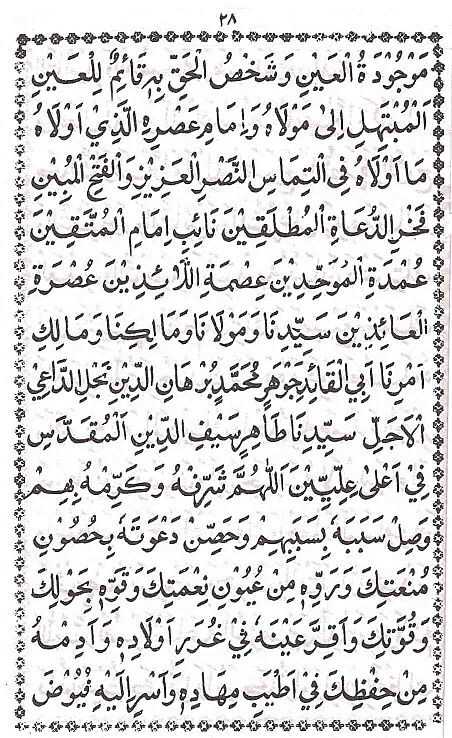 ٢٨
مَوْجُوْدَةُ الْعَيْنِ وَشَخْصُ الْحَقِّ بِهٖ قَائِمٌ لِلْعَـيْنِ
اَلْمُبْتَهِلِ اِلىٰ مَوْلَاهُ وَاِمَامِ عَصْرِهِ الَّذِيْ اَوْلَاهُ
مَا اَوْلَاهُ فِى الْتِمَاسِ النَّصْرِ الْعَزِيْزِ وَالْفَتْحِ الْمُبِيْنِ
فَخْرِ الدُّعَاةِ الْمُطْلَقِيْنَ نَائِبِ اِمَامِ الْمُتَّقِيْنَ
عُمْدَةِ الْمُوَحِّدِيْنَ عِصْمَةِ اللَّائِذِيْنَ عُصْرَةِ
الْعَائِذِيْنَ سَيِّدِنَا وَمَوْلَانَا وَمَالِكِنَا وَمَالِكِ
اَمْرِنَا اَبِي الْقَائِدِ جَوْهَرٍ مُحَمَّدٍ بُرْهَانِ الدِّيْنِ نَجْلِ الدَّاعِيْ
الْاَجَلِّ سَيِّدِنَا طَاهِرٍ سَيْفِ الدِّيْنِ اَلْمُقَدَّسِ
فِيْ اَعْلىٰ عِلِّيِّيْنَ اَللّٰهُمَّ شَرِّفْهُ وَكَرِّمْهُ بِهِمْ
وَصِلْ سَبَبَهٗ بِسَبَبِهِمْ وَحَصِّنْ دَعْوَتَهٗ بِحُصُوْنِ
مُنْعَتِكَ وَرَوِّهٖ مِنْ عُيُوْنِ نِعْمَتِكَ وَقَوِّهٖ بِحَوْلِكَ
وَقُوَّتِكَ وَاَقِرَّ عَيْنَهٗ فِيْ غُرَرِ اَوْلَادِهٖ وَاَدِمْهُ
مِنْ حِفْظِكَ فِيْ اَطْيَبِ مِهَادِهٖ وَاَسْرِ اِلَيْهِ فُيُوْضَ